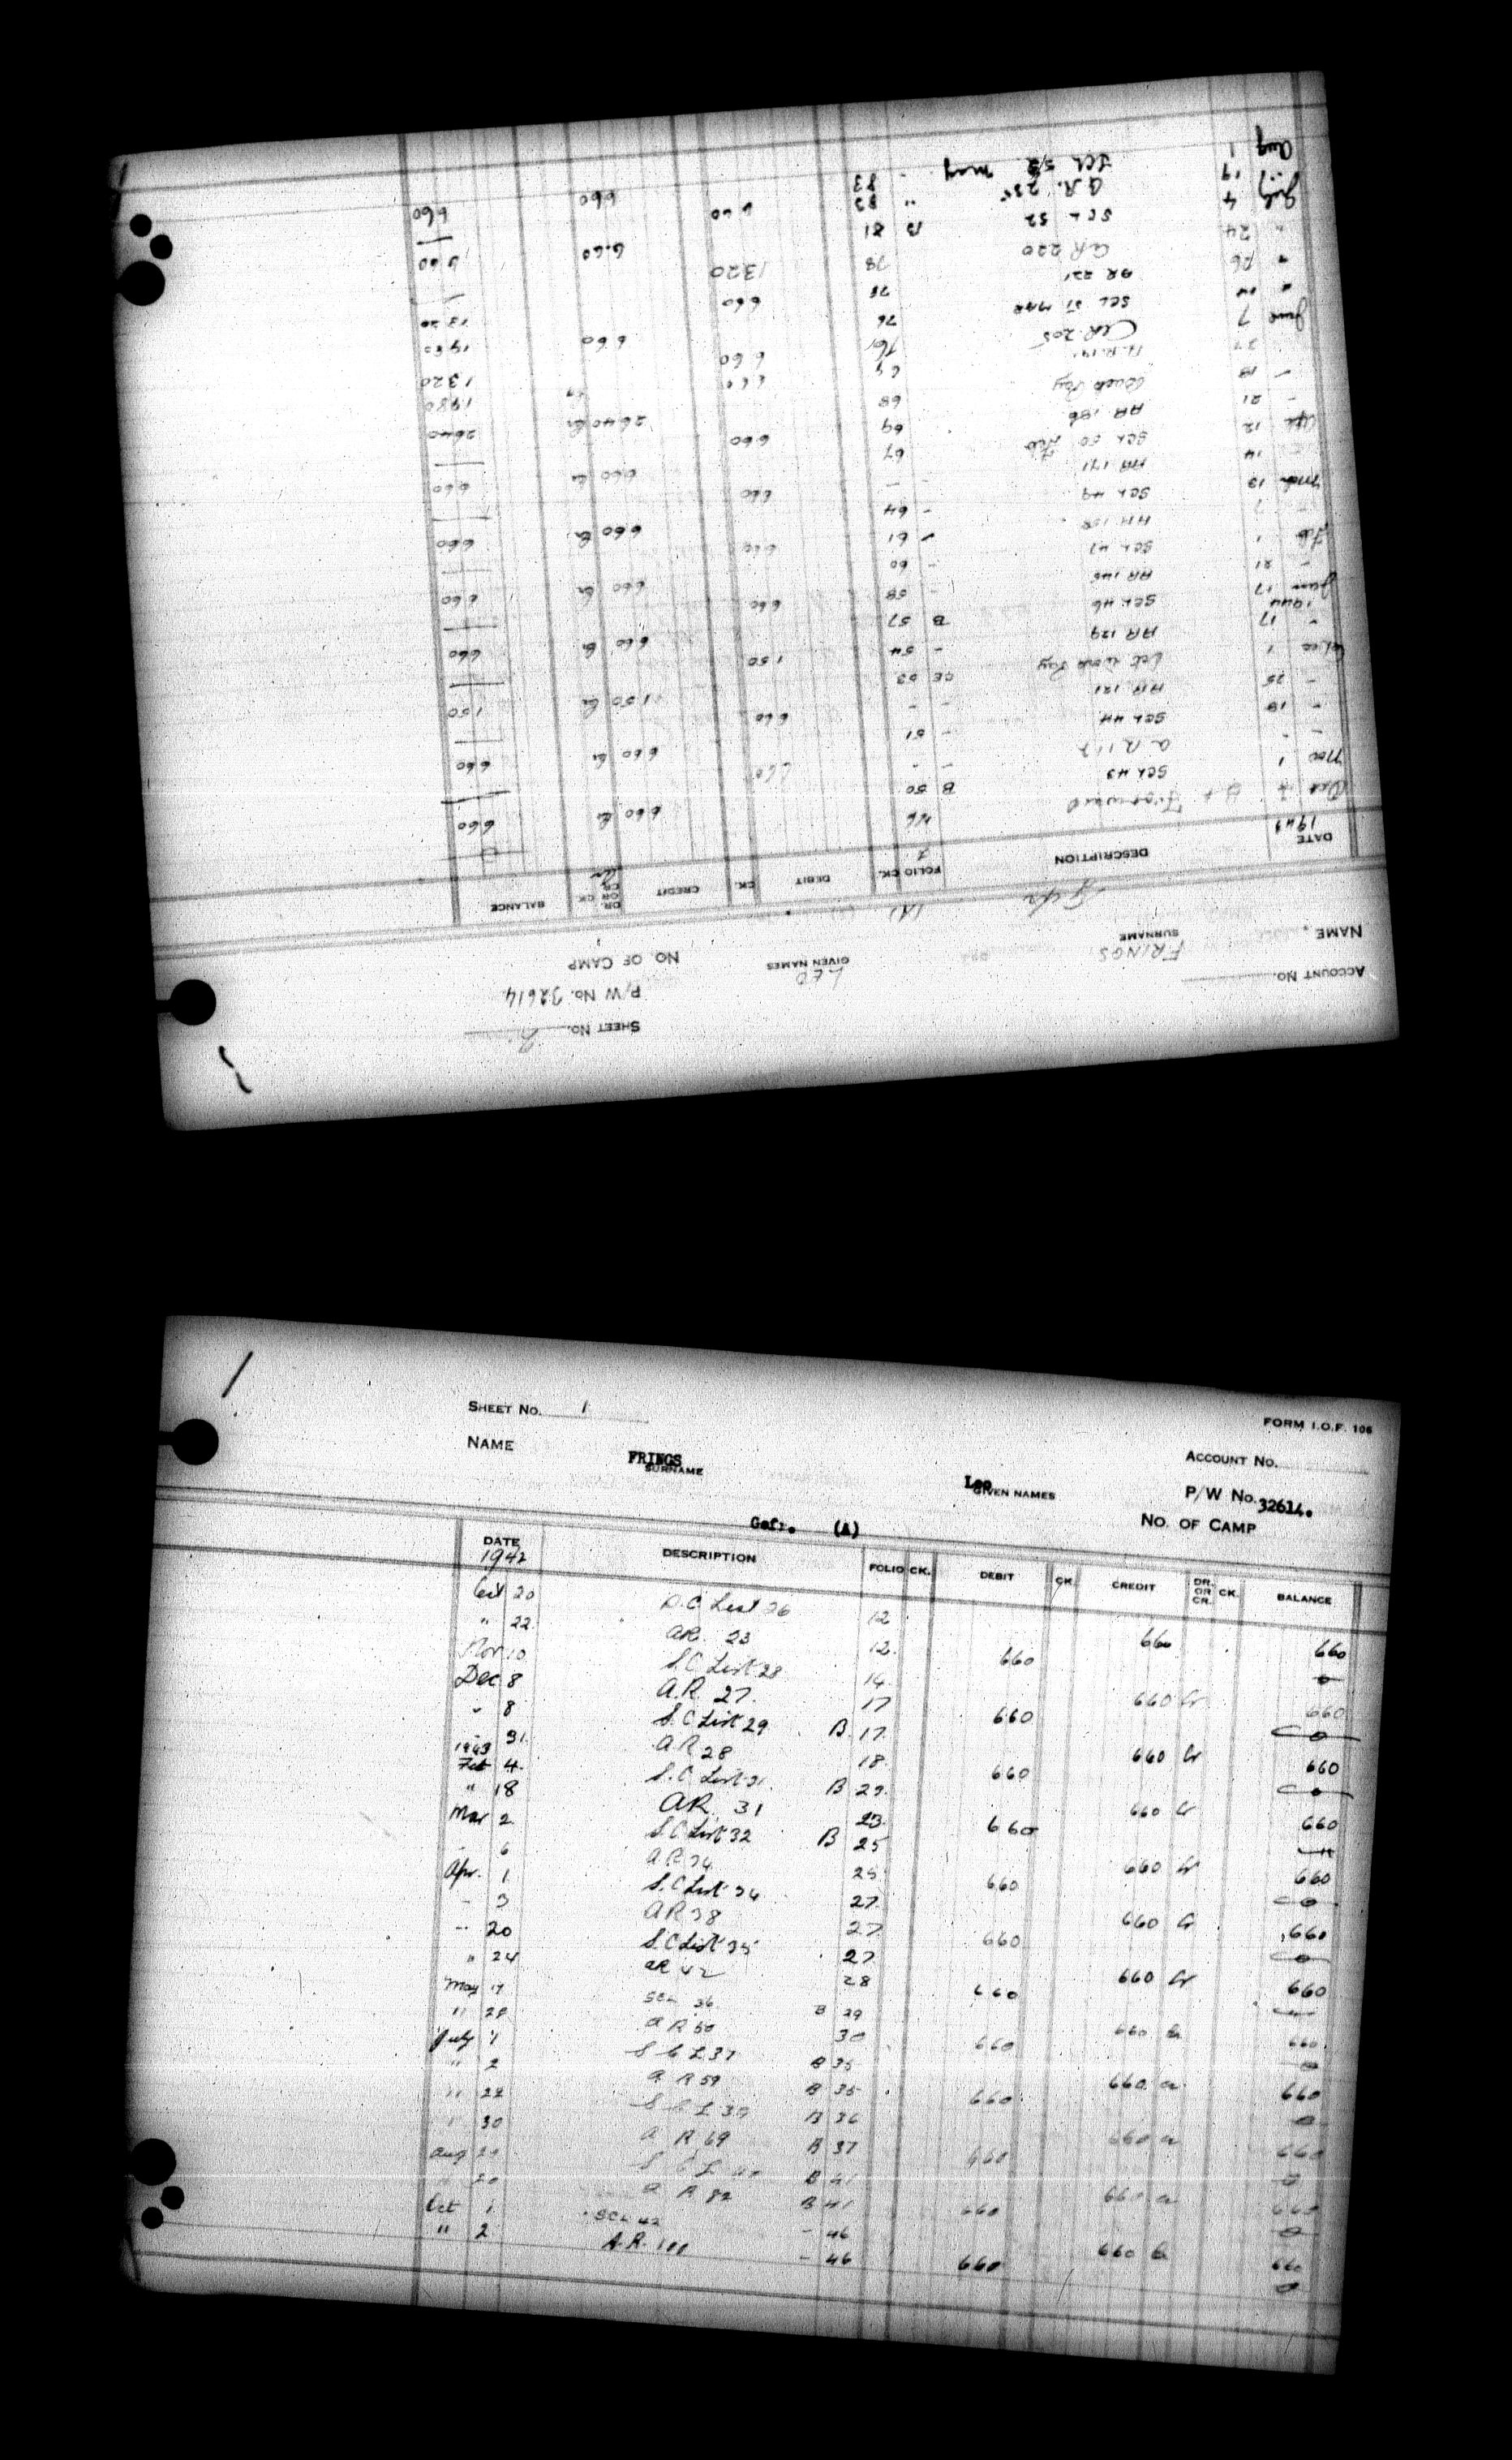 SHEET No. 2
P/W No. 32614
ACCOUNT No.
NAME FRINGS LEO NO. OF CAMP
SURNAME GIVEN NAMES
Gefr (A)
DATE DESCRIPTION FOLIO CK. DEBIT CK. CREDIT DR. OR CR. CK. BALANCE
1943
Oct Forward 46
Nov 1 SCL 43 B 50 660 Cr 660
" " A R 117 660
" 18 SCL 44 51 660 Cr 660
" 25 AR 121 660
Dec 1 Work Pay 53 150 Cr 150
" 17 AR 129 54 150
1944
Jan 17 SCL 46 B 57 660 Cr 660
" 21 AR 146 58 660
Feb 1 SCL 47 60 660 Cr 660
7 AR 158 61 660
Mch 13 SCL 49 64 660 Cr 660
14 AR 171 660
Apr 12 SCL 50 Feb 67 660 Cr 660
21 AR 186 69 660
18 68 2640 Cr 2640
27 A.R. 191 69 660 1980
June 7 AR 205 76 660 1320
SCL 51 MAR 76 660 1980
26 AR 221 78 660 1320
24 AR 220 78 1320
July 4 SCL 52 B 81 6.60 660
19 A.R. 235 " 83 660
Aug 1 SCL 53 May " 83 660 660
SHEET No. 1
FORM I.O.F. 106
NAME FRINGS Leo ACCOUNT No.
SURNAME GIVEN NAMES
P/W No. 32614.
Gefr. (A) NO. OF CAMP
DATE DESCRIPTION FOLIO CK. DEBIT CK. CREDIT DR. OR CR. CK. BALANCE
1942
Oct 20 S.C List 26 12 660 660
" 22 AR. 23 12 660 0
Nov 10 S.C List 28 14 660 Cr 660
Dec 8 A.R. 27 17 660 0
" 8 S.C List 29 B 17 660 Cr 660
" 31 AR 28 18 660 0
1943
Feb 4 S.C List 31 B 22 660 Cr 660
" 18 AR. 31 23 660
Mar 2 S.C List 32 B 25 660 Cr 660
" 6 A.R 34 25 660 0
Apr. 1 S.C List 34 27 660 Cr 660
" 3 AR 38 27 660 0
" 20 S.C List 35 27 660 Cr 660
" 24 AR 42 28 660
May 17 SCL 36 B 29 660 Cr 660
" 28 A R 50 30 660 0
July 1 S C L 37 B 35 660 Cr 660
" 2 A R 59 B 35 660 0
" 28 S C L 39 B 36 660 Cr 660
" 30 A R 69 B 37 660 0
Aug S C L 40 B 41 660 Cr 660
20 A R 82 B 41 660 0
Oct 1 SCL 42 - 46 660 Cr 660
" 2 A.R. 100 - 46 660 0